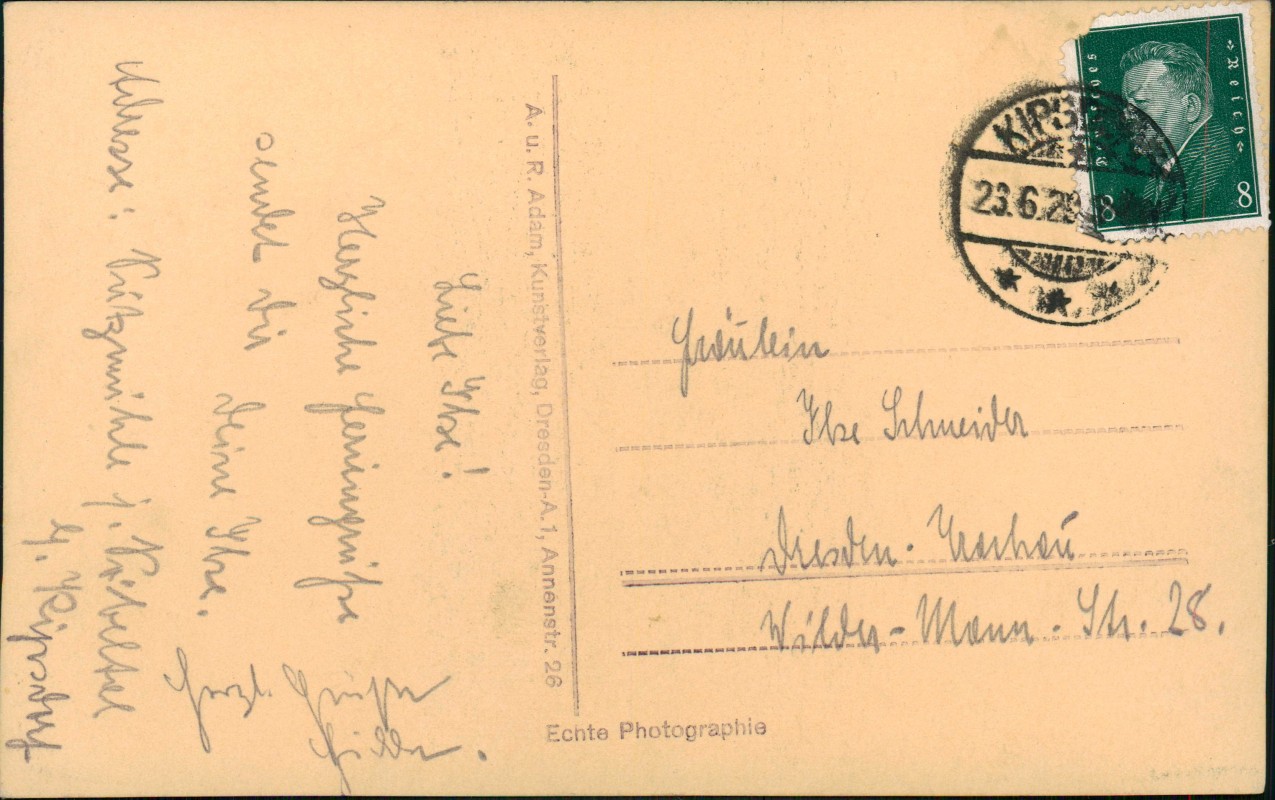 Liebe Ilse!
Herzliche Feriengrüße
sendet Dir
Deine Ilse.
Herzl. Grüße
Hilde.
Adresse: Pützmühle j.
A. u. R. Adam, Kunstverlag, Dresden-A. 1, Annenstr. 26
Echte Photographie
Deutsches Reich
8 8
23.6.28
Fräulein
Ilse Schneider
Dresden-Trachau
Wilder-Mann-Str. 28.